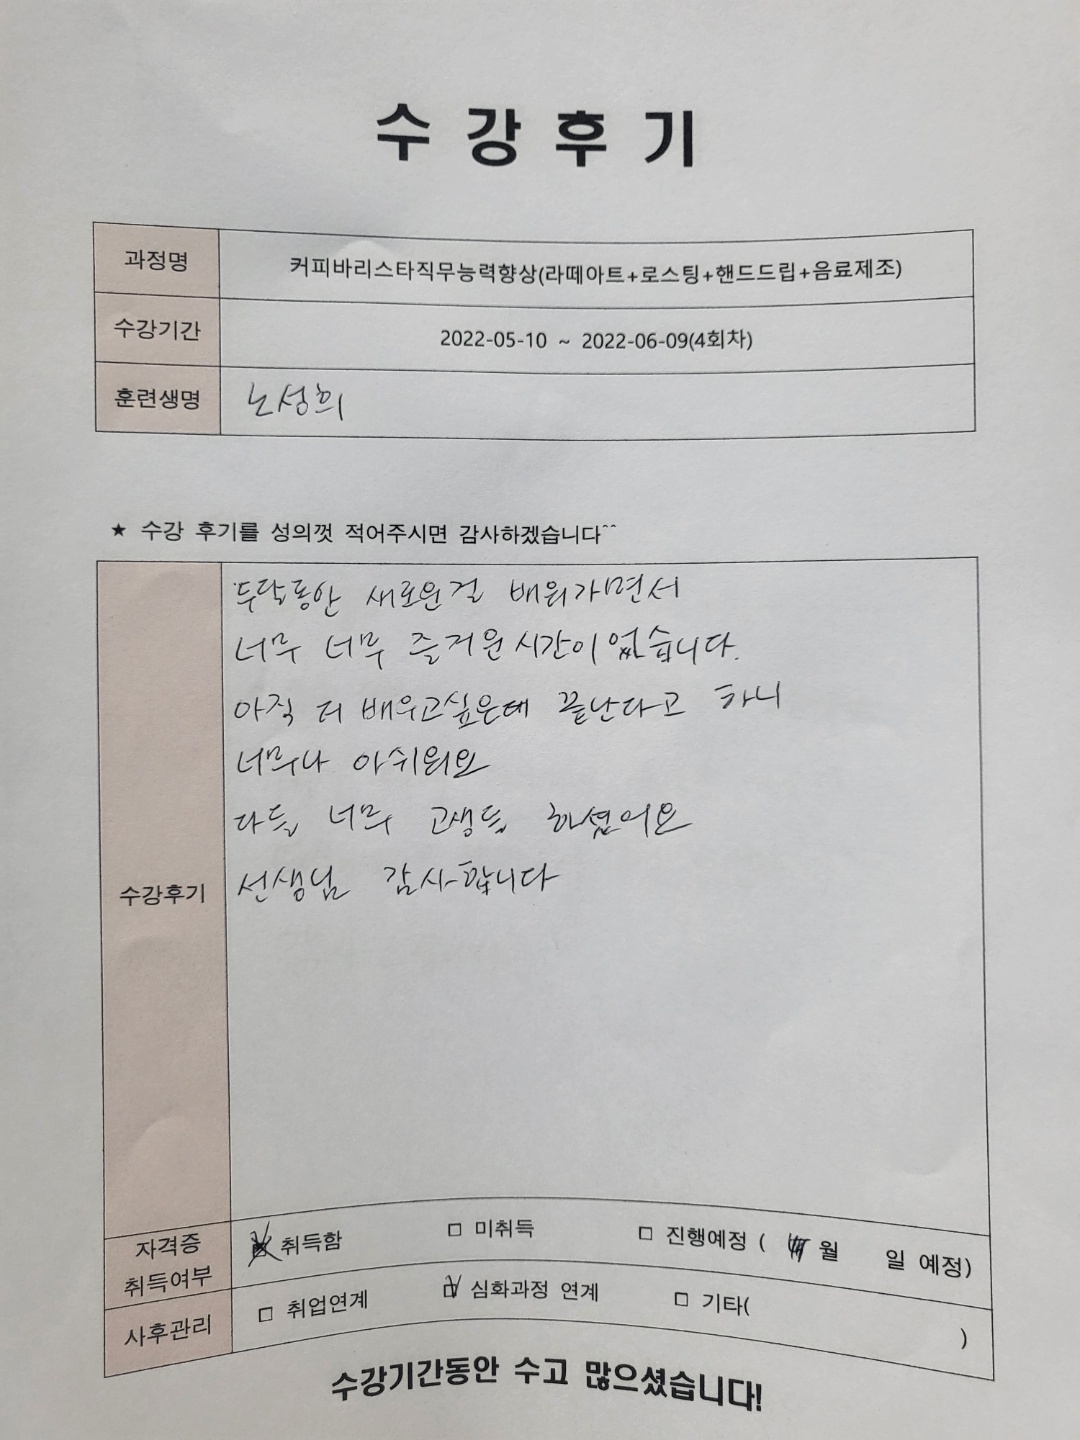 수강후기
과정명 커피바리스타직무능력향상(라떼아트+로스팅+핸드드립+음료제조)
수강기간 2022-05-10 ~ 2022-06-09(4회차)
훈련생명 노성희
★ 수강 후기를 성의껏 적어주시면 감사하겠습니다^^
두달동안 새로운걸 배워가면서
너무 너무 즐거운 시간이 었습니다.
아직 더 배우고싶은데 끝난다고 하니
너무나 아쉬워요
다들 너무 고생들 하셨어요
수강후기 선생님 감사합니다
자격증 취득여부 취득함 □ 미취득 □ 진행예정 ( 월 일 예정)
사후관리 □ 취업연계 ☑ 심화과정 연계 □ 기타( )
수강기간동안 수고 많으셨습니다!